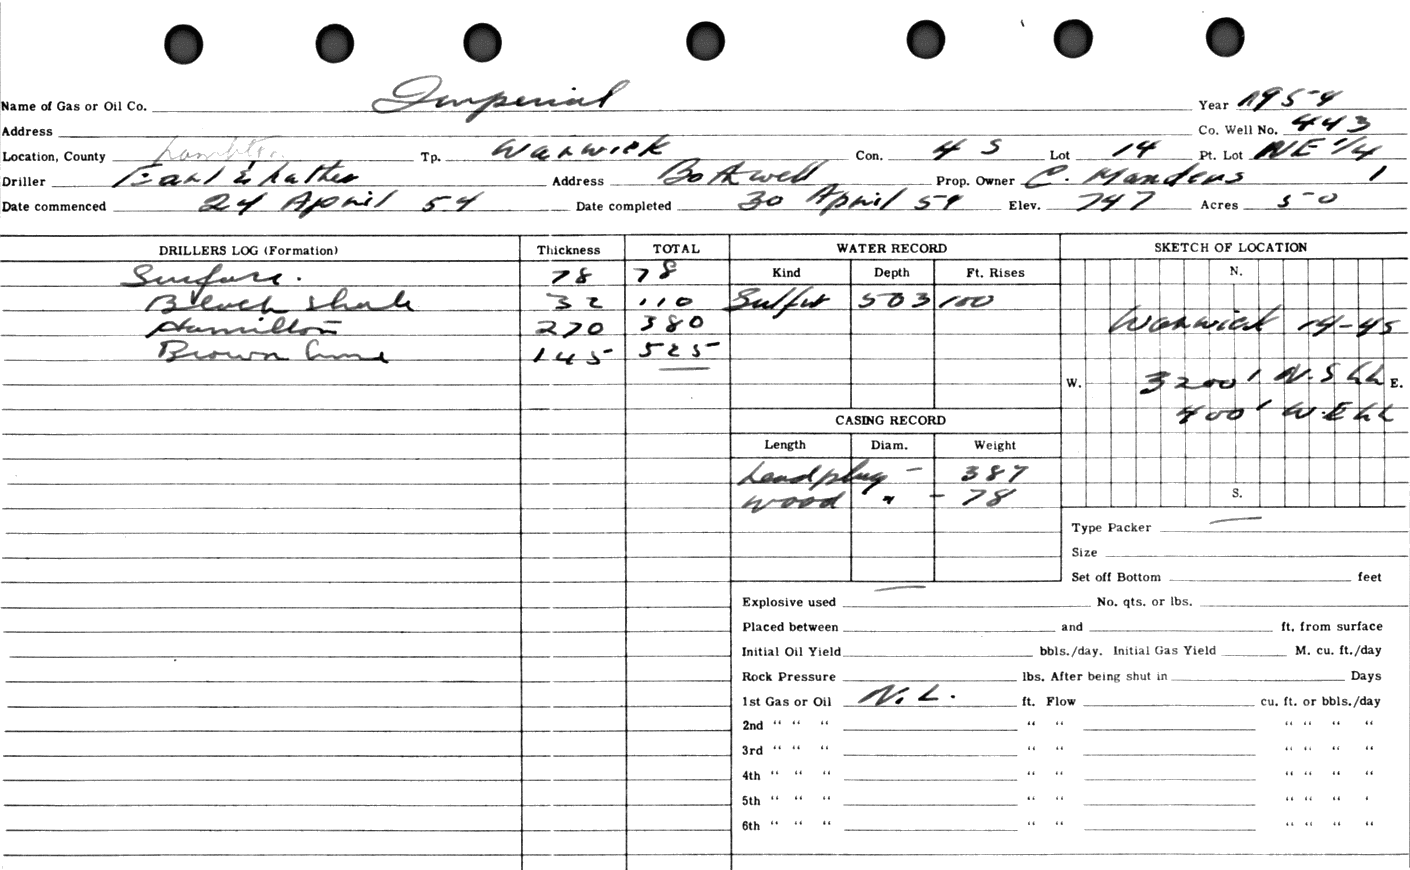 Name of Gas or Oil Co. Imperial Year 1954
Address Co. Well No. 443
Location, County Lambton Tp. Warwick Con. 4 S Lot 14 Pt. Lot NE 1/4
Driller Earl Address Bothwell Prop. Owner C. Manders 1
Date commenced 24 April 54 Date completed 30 April 54 Elev. 747 Acres 50
DRILLERS LOG (Formation) Thickness TOTAL WATER RECORD SKETCH OF LOCATION
Surface. 78 78 Kind Depth Ft. Rises N.
Black shale 32 110 Sulfur 503 100
Hamilton 270 380 Warwick 14-4S
Brown Lime 145 525
W. 3200' N.S LL E.
400' W.E LL
CASING RECORD
Length Diam. Weight
Lead plug - 387
wood " - 78 S.
Type Packer —
Size
Set off Bottom feet
Explosive used — No. qts. or lbs.
Placed between and ft. from surface
Initial Oil Yield bbls./day. Initial Gas Yield M. cu. ft./day
Rock Pressure lbs. After being shut in Days
1st Gas or Oil NiL. ft. Flow cu. ft. or bbls./day
2nd “ “ “ “ “ “ “ “ “
3rd “ “ “ “ “ “ “ “ “
4th “ “ “ “ “ “ “ “ “
5th “ “ “ “ “ “ “ “ ‘
6th “ “ “ “ “ “ “ “ “